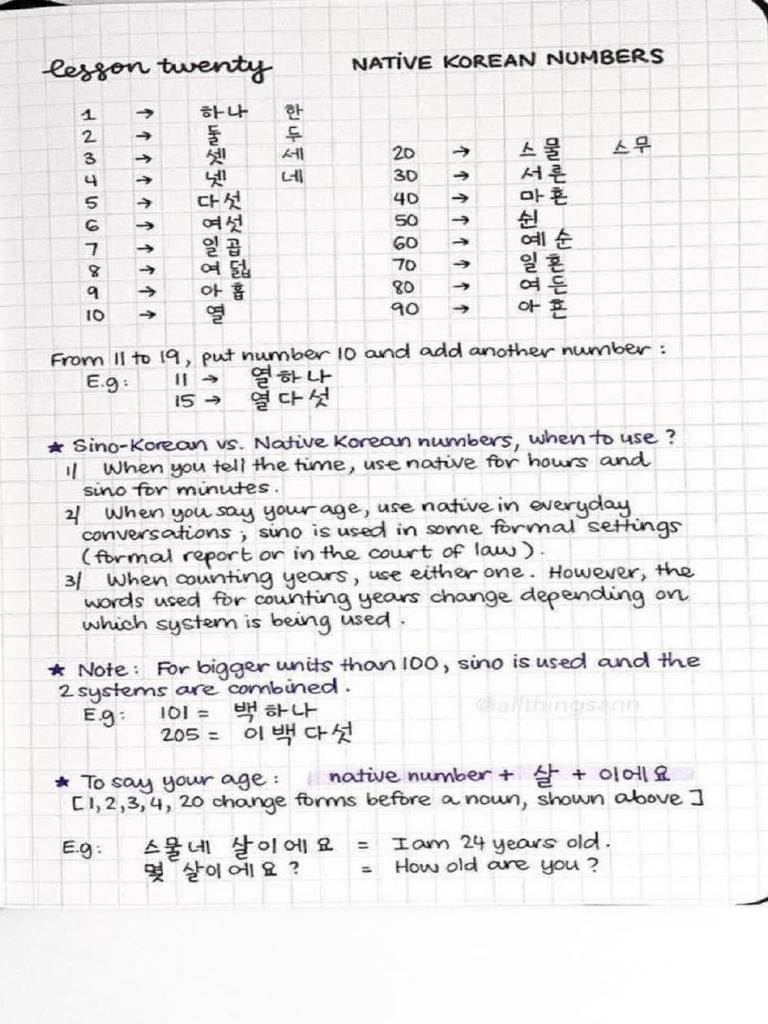 lesson twenty
NATIVE KOREAN NUMBERS
1 → 하나 한
2 → 둘 두
3 → 셋 세
4 → 넷 네
5 → 다섯
6 → 여섯
7 → 일곱
8 → 여덟
9 → 아홉
10 → 열
20 → 스물 스무
30 → 서른
40 → 마흔
50 → 쉰
60 → 예순
70 → 일흔
80 → 여든
90 → 아흔
From 11 to 19, put number 10 and add another number :
E.g: 11 → 열하나
15 → 열다섯
★ Sino-Korean vs. Native Korean numbers, when to use ?
1/ When you tell the time, use native for hours and
sino for minutes.
2/ When you say your age, use native in everyday
conversations ; sino is used in some formal settings
(formal report or in the court of law).
3/ When counting years, use either one. However, the
words used for counting years change depending on
which system is being used.
★ Note: For bigger units than 100, sino is used and the
2 systems are combined.
@allthingsann
E.g: 101 = 백하나
205 = 이백다섯
★ To say your age : native number + 살 + 이에요
[1,2,3,4, 20 change forms before a noun, shown above]
E.g: 스물네 살이에요 = I am 24 years old.
몇 살이에요? = How old are you?